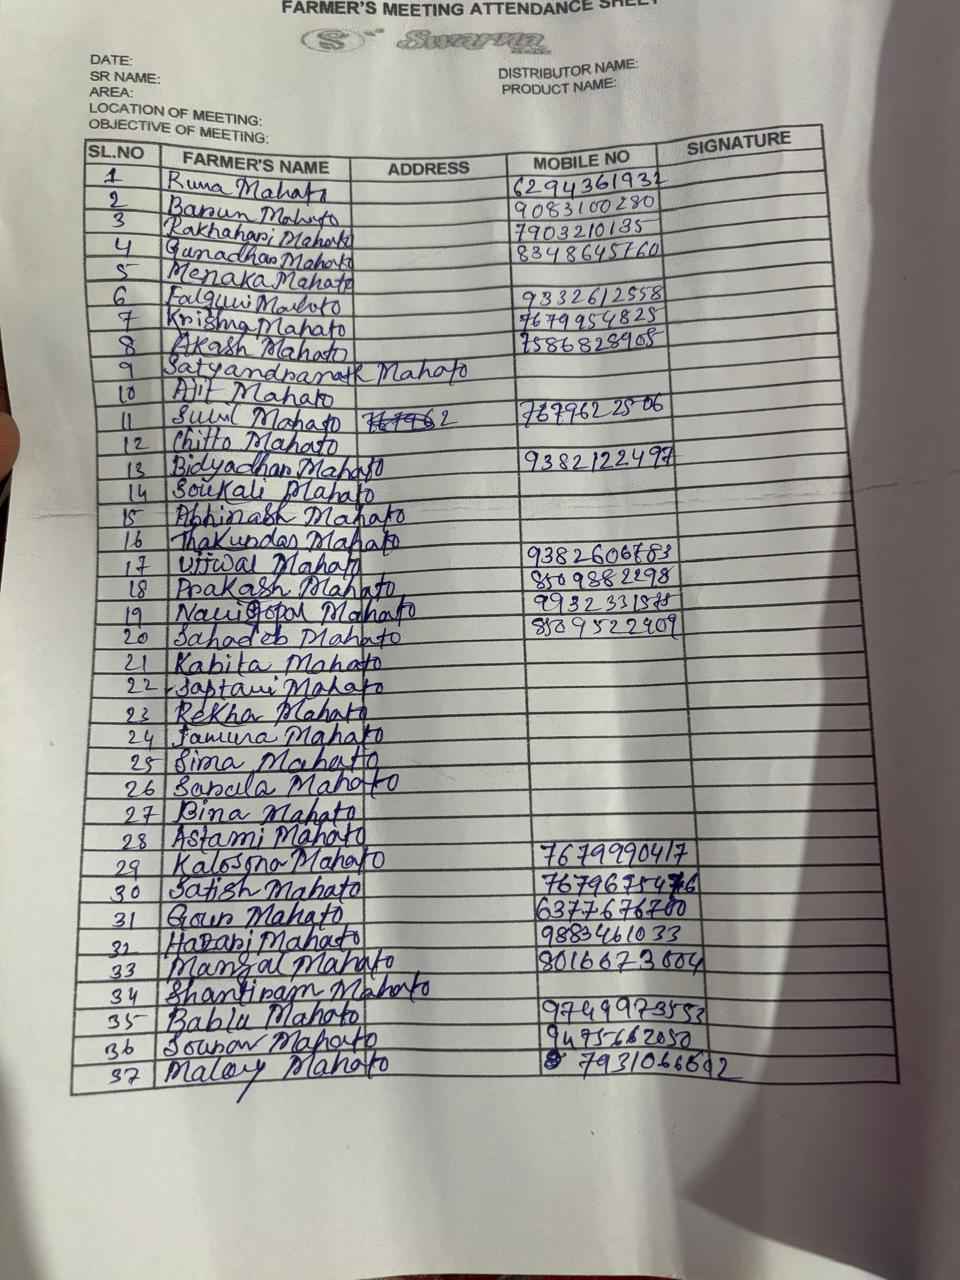 FARMER'S MEETING ATTENDANCE SHEET
S Swarna
DATE:
SR NAME:
AREA:
LOCATION OF MEETING:
OBJECTIVE OF MEETING:
DISTRIBUTOR NAME:
PRODUCT NAME:
SL.NO FARMER'S NAME ADDRESS MOBILE NO SIGNATURE
1 Runa Mahato 6294361932
2 Barun Mahato 9083100280
3 Rakhahari Mahato 7903210135
4 Gunadhar Mahato 8348645760
5 Menaka Mahato
6 Falguni Mahato 9332612558
7 Krishna Mahato 7679954825
8 Akash Mahato 7586828905
9 Satyandranath Mahato
10 Ajit Mahato
11 Sunil Mahato 7679622506
12 Chitto Mahato
13 Bidyadhar Mahato 9382122497
14 Soukali Mahato
15 Abhinash Mahato
16 Thakurdas Mahato
17 Ujjwal Mahato 9382606783
18 Prakash Mahato 8509882298
19 Nanigopal Mahato
20 Sahadeb Mahato 8509522909
21 Kabita Mahato
22 Saptami Mahato
23 Rekha Mahato
24 Jamuna Mahato
25 Sima Mahato
26 Sarala Mahato
27 Bina Mahato
28 Astami Mahato
29 Kalosona Mahato 7679990417
30 Satish Mahato
31 Gour Mahato 6377676700
32 Hazari Mahato 9883461033
33 Mangal Mahato 8016673604
34 Shantiram Mahato
35 Bablu Mahato 9749973553
36 Mahato 9475662050
37 Maloy Mahato 7931066692